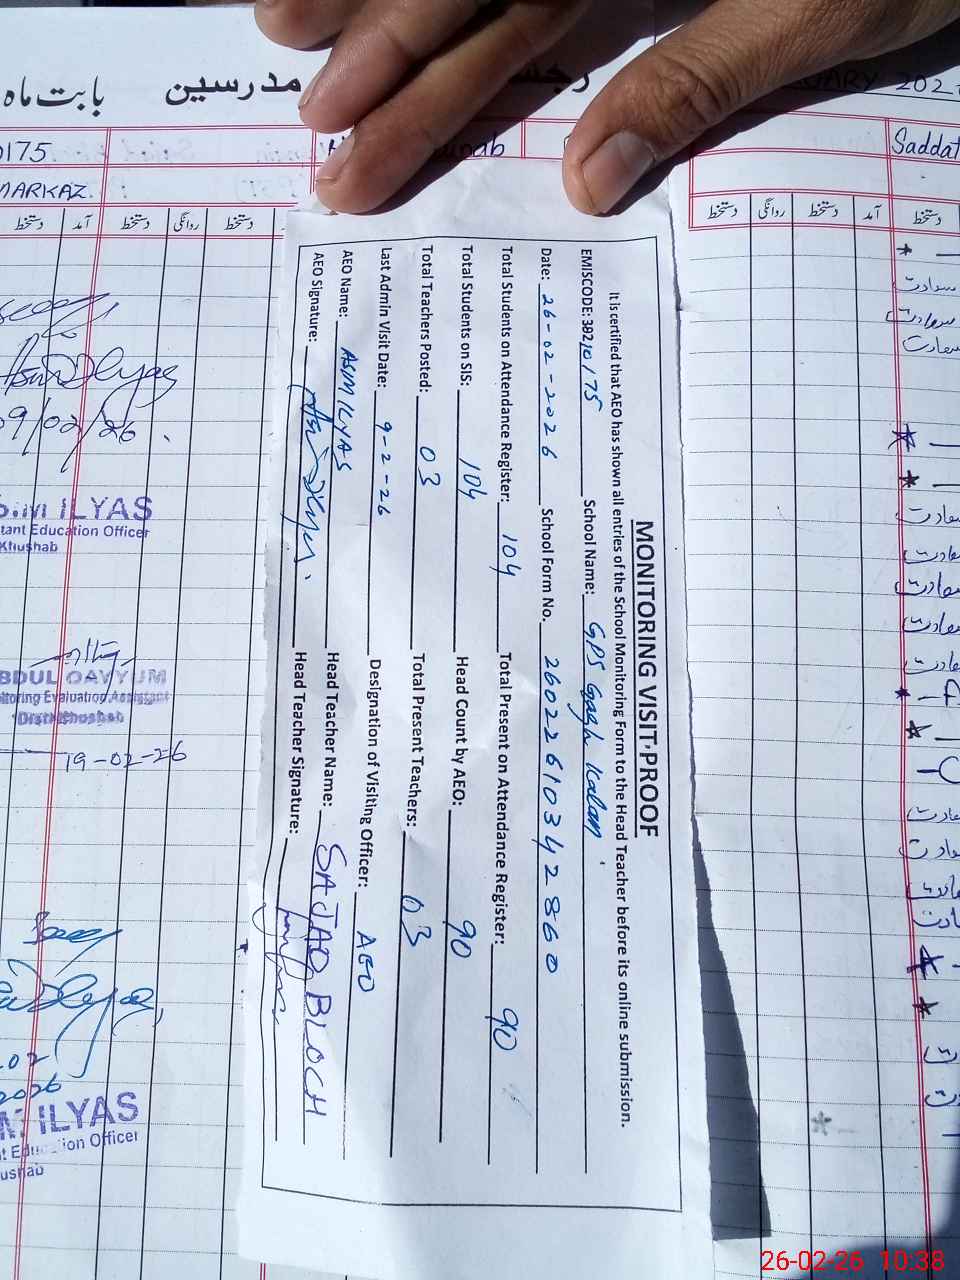 بابت ماہ
مدرسین
2026
0175
Saddat
MARKAZ.
دستخط آمد دستخط روانگی دستخط
دستخط روانگی دستخط آمد دستخط
MONITORING VISIT-PROOF
It is certified that AEO has shown all entries of the School Monitoring Form to the Head Teacher before its online submission.
EMISCODE: 39210175 School Name: GPS Kalan
Date: 26-02-2026 School Form No. 2602261034 2860
Total Students on Attendance Register: 104 Total Present on Attendance Register: 90
Total Students on SIS: 104 Head Count by AEO: 90
Total Teachers Posted: 03 Total Present Teachers: 03
Last Admin Visit Date: 9-2-26 Designation of Visiting Officer: AEO
AEO Name: ASIM ILYAS Head Teacher Name: SAJJAD BLOCH
AEO Signature: Head Teacher Signature:
09/02/26
ILYAS
tant Education Officer
Khushab
BDUL QAYYUM
itoring Evaluation Assistant
Distt Khushab
19-02-26
.02
2026
M ILYAS
t Education Officer
ushab
سعادت
سعادت
سعادت
26-02-26 10:38